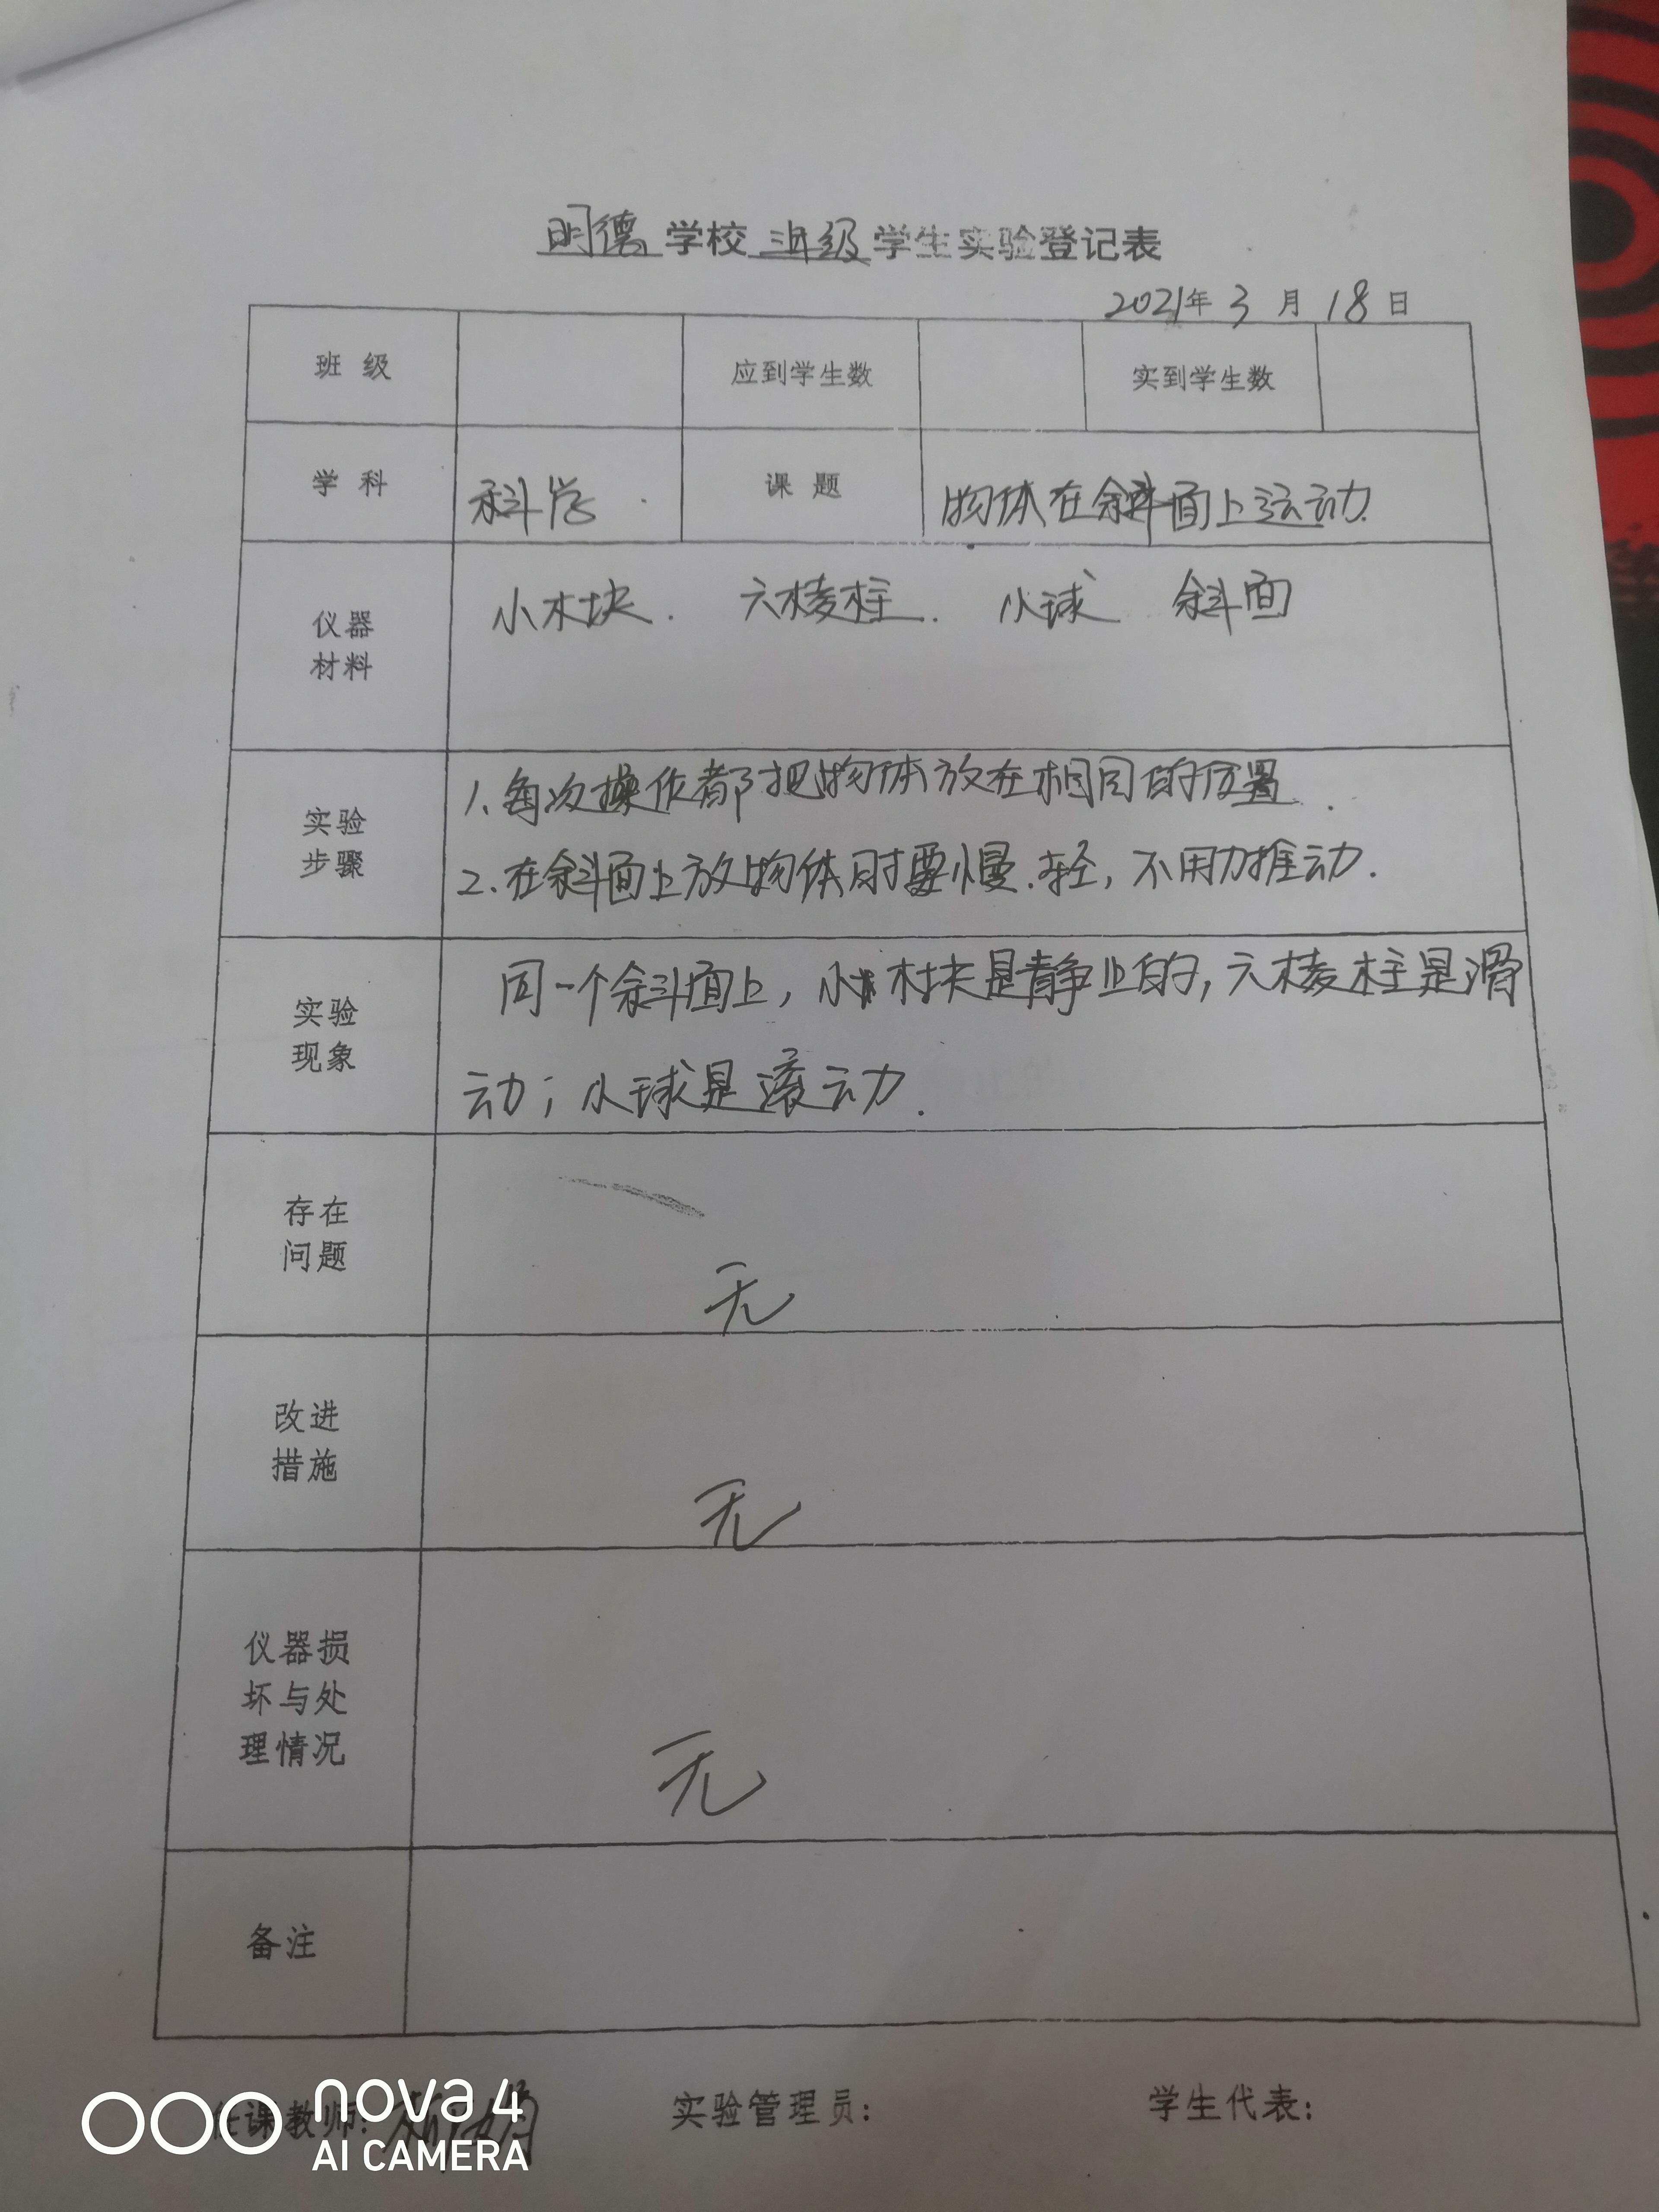 明德 学校 三年级 学生实验登记表
2021年 3 月 18 日
班 级 应到学生数 实到学生数
学 科 科学 课 题 物体在斜面上运动
仪器
材料
小木块. 六棱柱. 小球 斜面
实验
步骤
1.每次操作都把物体放在相同的位置.
2.在斜面上放物体时要慢.轻,不用力推动.
实验
现象
同一个斜面上,小木块是静止的,六棱柱是滑
动;小球是滚动.
存在
问题
无
改进
措施
无
仪器损
坏与处
理情况
无
备注
任课教师: 实验管理员: 学生代表:
nova 4
AI CAMERA